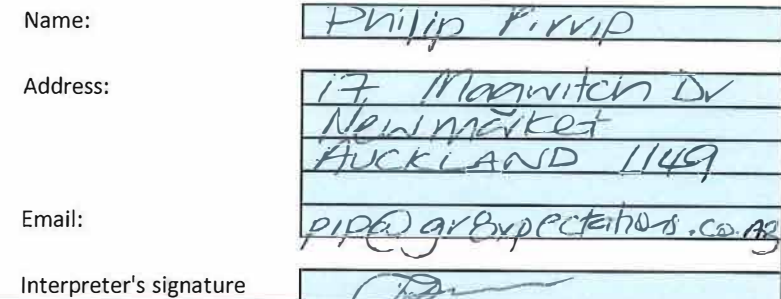 Name: Philip Pirrip
Address: 17 Magwitch Dr
Newmarket
AUCKLAND 1149
Email: pip@gr8xpectations.co.nz
Interpreter's signature